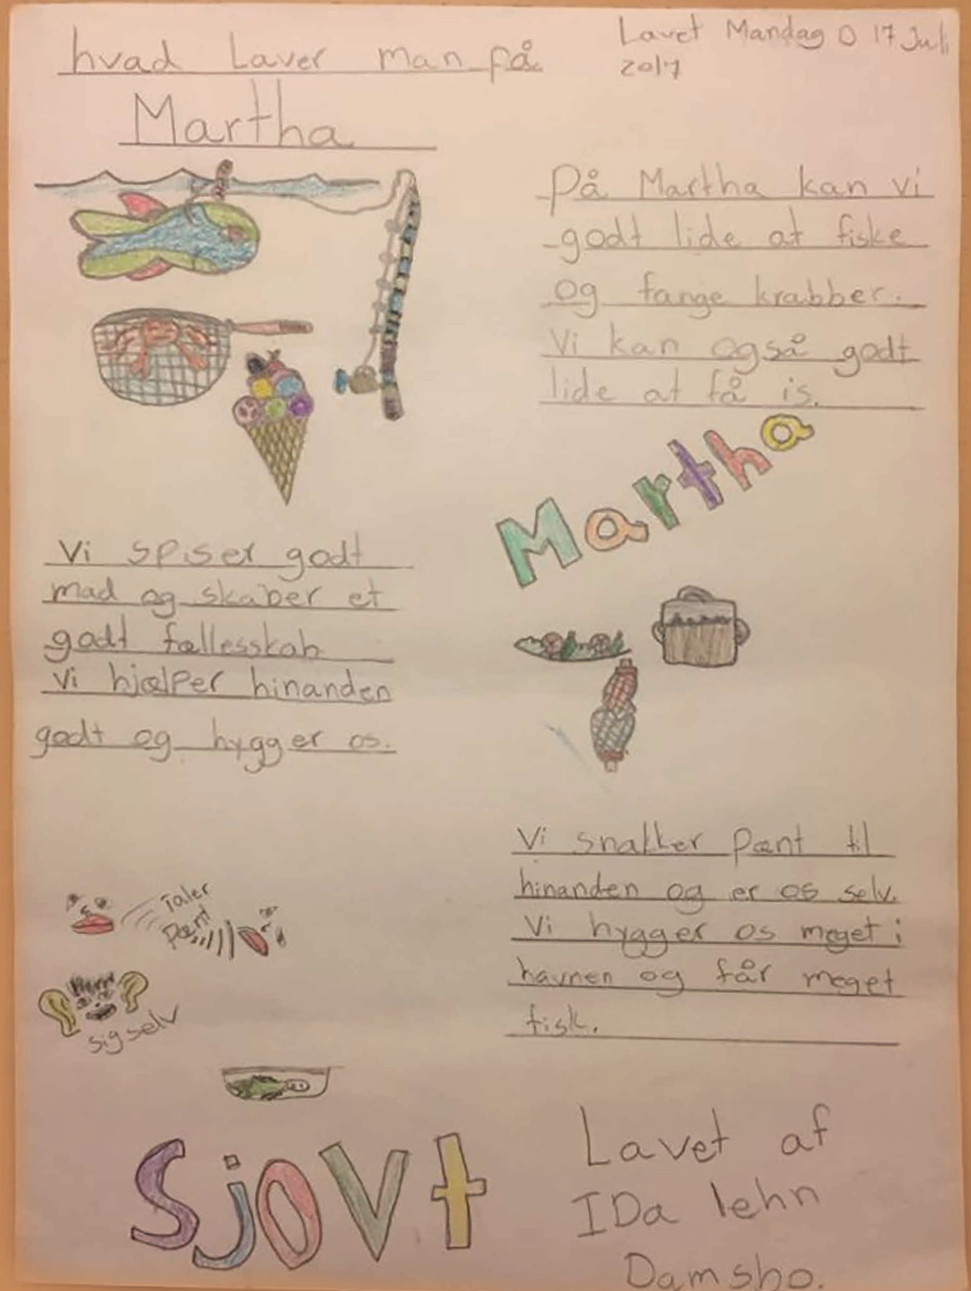 hvad Laver man på
Martha
Lavet Mandag D 17 Juli
2017
På Martha kan vi
godt lide at fiske
og fange krabber.
Vi kan også godt
lide at få is.
Martha
Vi spiser godt
mad og skaber et
godt fællesskab
Vi hjælper hinanden
godt og hygger os.
Vi snakker Pænt til
hinanden og er os selv.
Vi hygger os meget i
havnen og får meget
fisk.
Taler
Pænt
sig selv
Sjovt
Lavet af
IDa lehn
Damsbo.